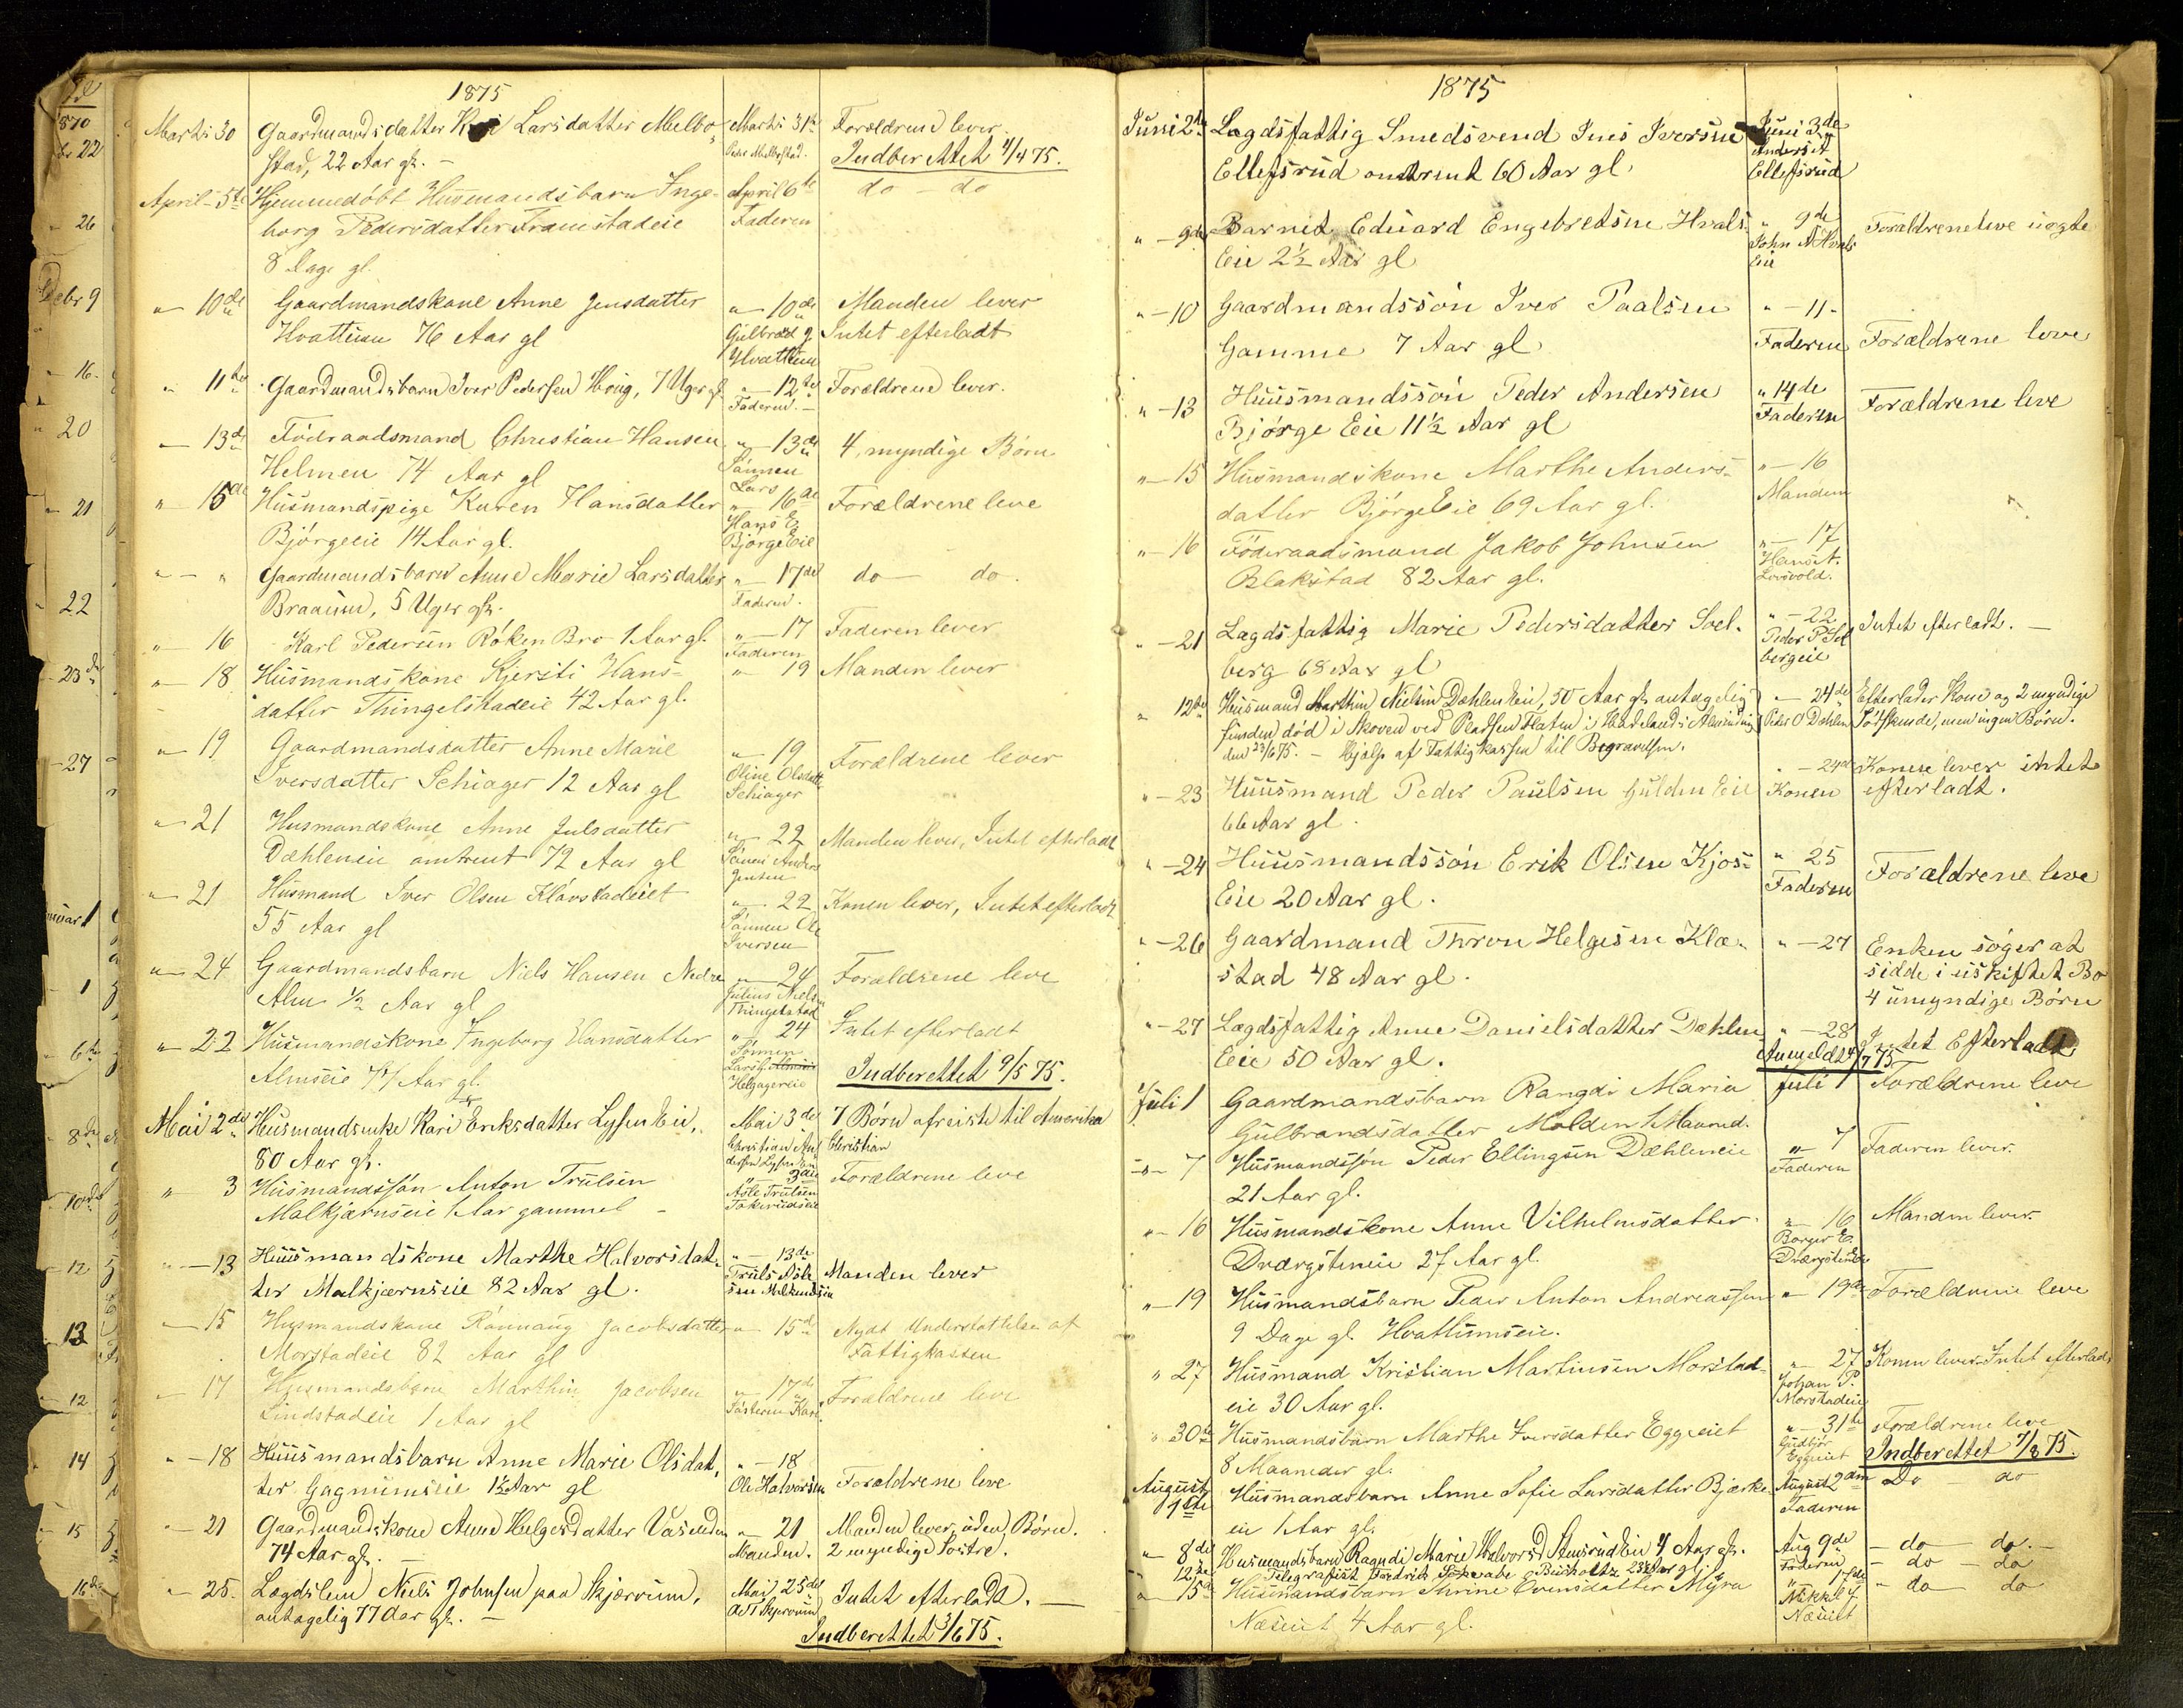 1875
Marts 30 Gaardmandsdatter Kari Larsdatter Melbo Marts 31te Forældrene lever.
stad, 22 Aar gl. – Peder Melbostad. Indberettet 4/4 75.
April 5te Hjemmedøbt Husmandsbarn Inge- April 6te do – do
borg Pedersdatter Framstadeie Faderen
8 Dage gl.
" 10de Gaardmandskone Anne Jensdatter " 10de Manden lever
Hvattum 76 Aar gl Gulbrand J Hvattum Intet efterladt
" 11te Gaardmandsbarn Iver Pedersen Houg, 7 Uger gl. " 12te Forældrene lever.
Faderen. –
– 13de Födraadsmand Christian Hansen " 13de 4 myndige Børn
Helmen 74 Aar gl Sønnen Lars
" 15de Husmandspige Karen Hansdatter " 16de Forældrene leve
Bjørgeeie 14 Aar gl. Hans E. Bjørge Eie
" – " Gaardmandsbarn Anne Marie Larsdatter " 17de do – do.
Braaum, 5 Uger gl. Faderen.
" 16 Karl Pedersen Røken Bro 1 Aar gl. " – 17 Faderen lever
Faderen
" 18 Husmandskone Kjersti Hans- " 19 Manden lever
datter Thingelstadeie 42 Aar gl.
" 19 Gaardmandsdatter Anne Marie " 19 Forældrene lever
Iversdatter Schiager 12 Aar gl Oline Olsdatter Schiager
" 21 Husmandskone Anne Julsdatter " 22 Manden lever, Intet efterladt
Dæhleneie omtrent 72 Aar gl Sønnen Anders Jensen
" 21 Husmand Iver Olsen Klavstadeiet " 22 Konen lever, Intet efterladt
55 Aar gl Sønnen Ole Iversen
" 24 Gaardmandsbarn Niels Hansen Nedre " 24 Forældrene leve
Alm ½ Aar gl Julius Nielsen Thingelstad
" 22 Husmandskone Ingeborg Hansdatter " 24 Intet efterladt
Almseie 77 Aar gl. Sønnen Lars Helgagereie Indberettet 9/5 75.
Mai 2de Husmandsenke Kari Eriksdatter Lysen Eie, Mai 3de 7 Børn afreiste til Amerika
80 Aar gl. Christian Andersen Lysen Eie Christian
" 3 Husmandssøn Anton Trulsen " 3die Forældrene leve
Malkjærnseie 1 Aar gammel – Asle Trulsen Tokerudseie
" – 13 Huusmandskone Marthe Halvorsdat- " – 13de
ter Malkjærnseie 82 Aar gl. Truls Aslesen Manden lever
– 15 Husmandskone Rønnaug Jacobsdatter " 15de Nydt Understøttelse af
Morstadeie 82 Aar gl Fattigkassen
– 17 Husmandsbarn Marthin Jacobsen " – 17de Forældrene leve
Lindstadeie 1 Aar gl Søsteren Kari
" – 18 Huusmandsbarn Anne Marie Olsdat- " – 18
ter Gagnumseie 1½ Aar gl Ole Halvorsen Forældrene leve
" – 21 Gaardmandskone Anne Helgesdatter Vasenden " – 21 Manden lever, uden Børn.
74 Aar gl. – Manden. 2 myndige Søstre.
" – 25. Lægdslem Niels Johnsen paa Skjærvum, Mai 25de Intet efterladt. –
antagelig 77 Aar gl. –
Indberettet 3/6 75.
1875
Juni 2de Lægdsfattig Smedsvend Jens Iversen Juni 3de
Ellefsrud omtrent 60 Aar gl. Anders A Ellefsrud
" – 9de Barnet Eduard Engebretsen Hvals- " 9de Forældrene leve uægte
Eie 2½ Aar gl John A Hvals Eie
" – 10 Gaardmandssøn Iver Paalsen " – 11 –
Gamme 7 Aar gl. Faderen Forældrene leve
" – 13 Huusmandssøn Peder Andersen " 14de Forældrene leve
Bjørge Eie 11½ Aar gl Faderen
" – 15 Husmandskone Marthe Anders- " – 16
datter Bjørge Eie 69 Aar gl. Manden
" – 16 Föderaadsmand Jakob Johnsen " – 17
Blakstad 82 Aar gl. Hans A.
" – 21 Lægdsfattig Marie Pedersdatter Soel- " – 22 Intet efterladt. –
berg 68 Aar gl Peder P Solbergeie
" 12te Husmand Marthin Nielsen Dæhlen Eie, 50 Aar gl. antagelig " – 24de Efterlader Kone og 2 myndige
funden død i Skoven ved Pladsen Flaten i Hadelands Almenning Peder O Dæhlen Södskende, men ingen Børn.
den 23/6 75. – Hjælp af Fattigkassen til Begravelsen.
" – 23 Huusmand Peder Paulsen Gulden Eie " – 24de Konen lever intet
66 Aar gl. Konen efterladt.
" – 24 Huusmandssøn Erik Olsen Kjos- " 25
Eie 20 Aar gl. Faderen Forældrene leve
" – 26 Gaardmand Thron Helgesen Klæ- " – 27 Enken søger at
stad 48 Aar gl. sidde i uskiftet Bo
4 umyndige Børn
" – 27 Lægdsfattig Anne Danielsdatter Dæhlen " – 28 Intet Efterladt
Eie 50 Aar gl. Anmeldt 4/7 75
Juli 1 Gaardmandsbarn Rangdi Maria Juli 1 Forældrene leve
Gulbrandsdatter Molden 1 Maaned.
" 7 Husmandssøn Peder Ellingsen Dæhleneie " 7 Faderen lever.
21 Aar gl. Faderen
" – 16 Husmandskone Anne Vilhelmsdatter " 16 Manden lever.
Dværgsteneie 27 Aar gl. Borger E. Dværgsten Eie
" – 19 Husmandsbarn Peder Anton Andreassen " – 19de Forældrene leve
9 Dage gl. Hvattumseie.
" 27 Husmand Kristian Martinsen Morstad- " 27 Konen lever Intet efterladt
eie 30 Aar gl. Johan P. Morstadeie
" 30te Husmandsbarn Marthe Iversdatter Eggeeiet " – 31te Forældrene leve
8 Maaneder gl. Gudbjør Eggeeiet Indberettet 7/8 75.
August 1ste Husmandsbarn Anne Sofie Larsdatter Bjerke- August 2den Do – do
eie 1 Aar gl. Faderen
" 8de Husmandsbarn Ragndi Marie Halvorsd Stensrud Eie 4 Aar gl. Aug 9de – do – do. –
" 12te Telegrafist Fredrik Buchholtz 23½ Aar gl. Faderen – do – do
" – 15de Husmandsbarn Thrine Evensdatter Myra " 17de " do – do
Næseiet 4 Aar gl. Mikkel J Næseiet